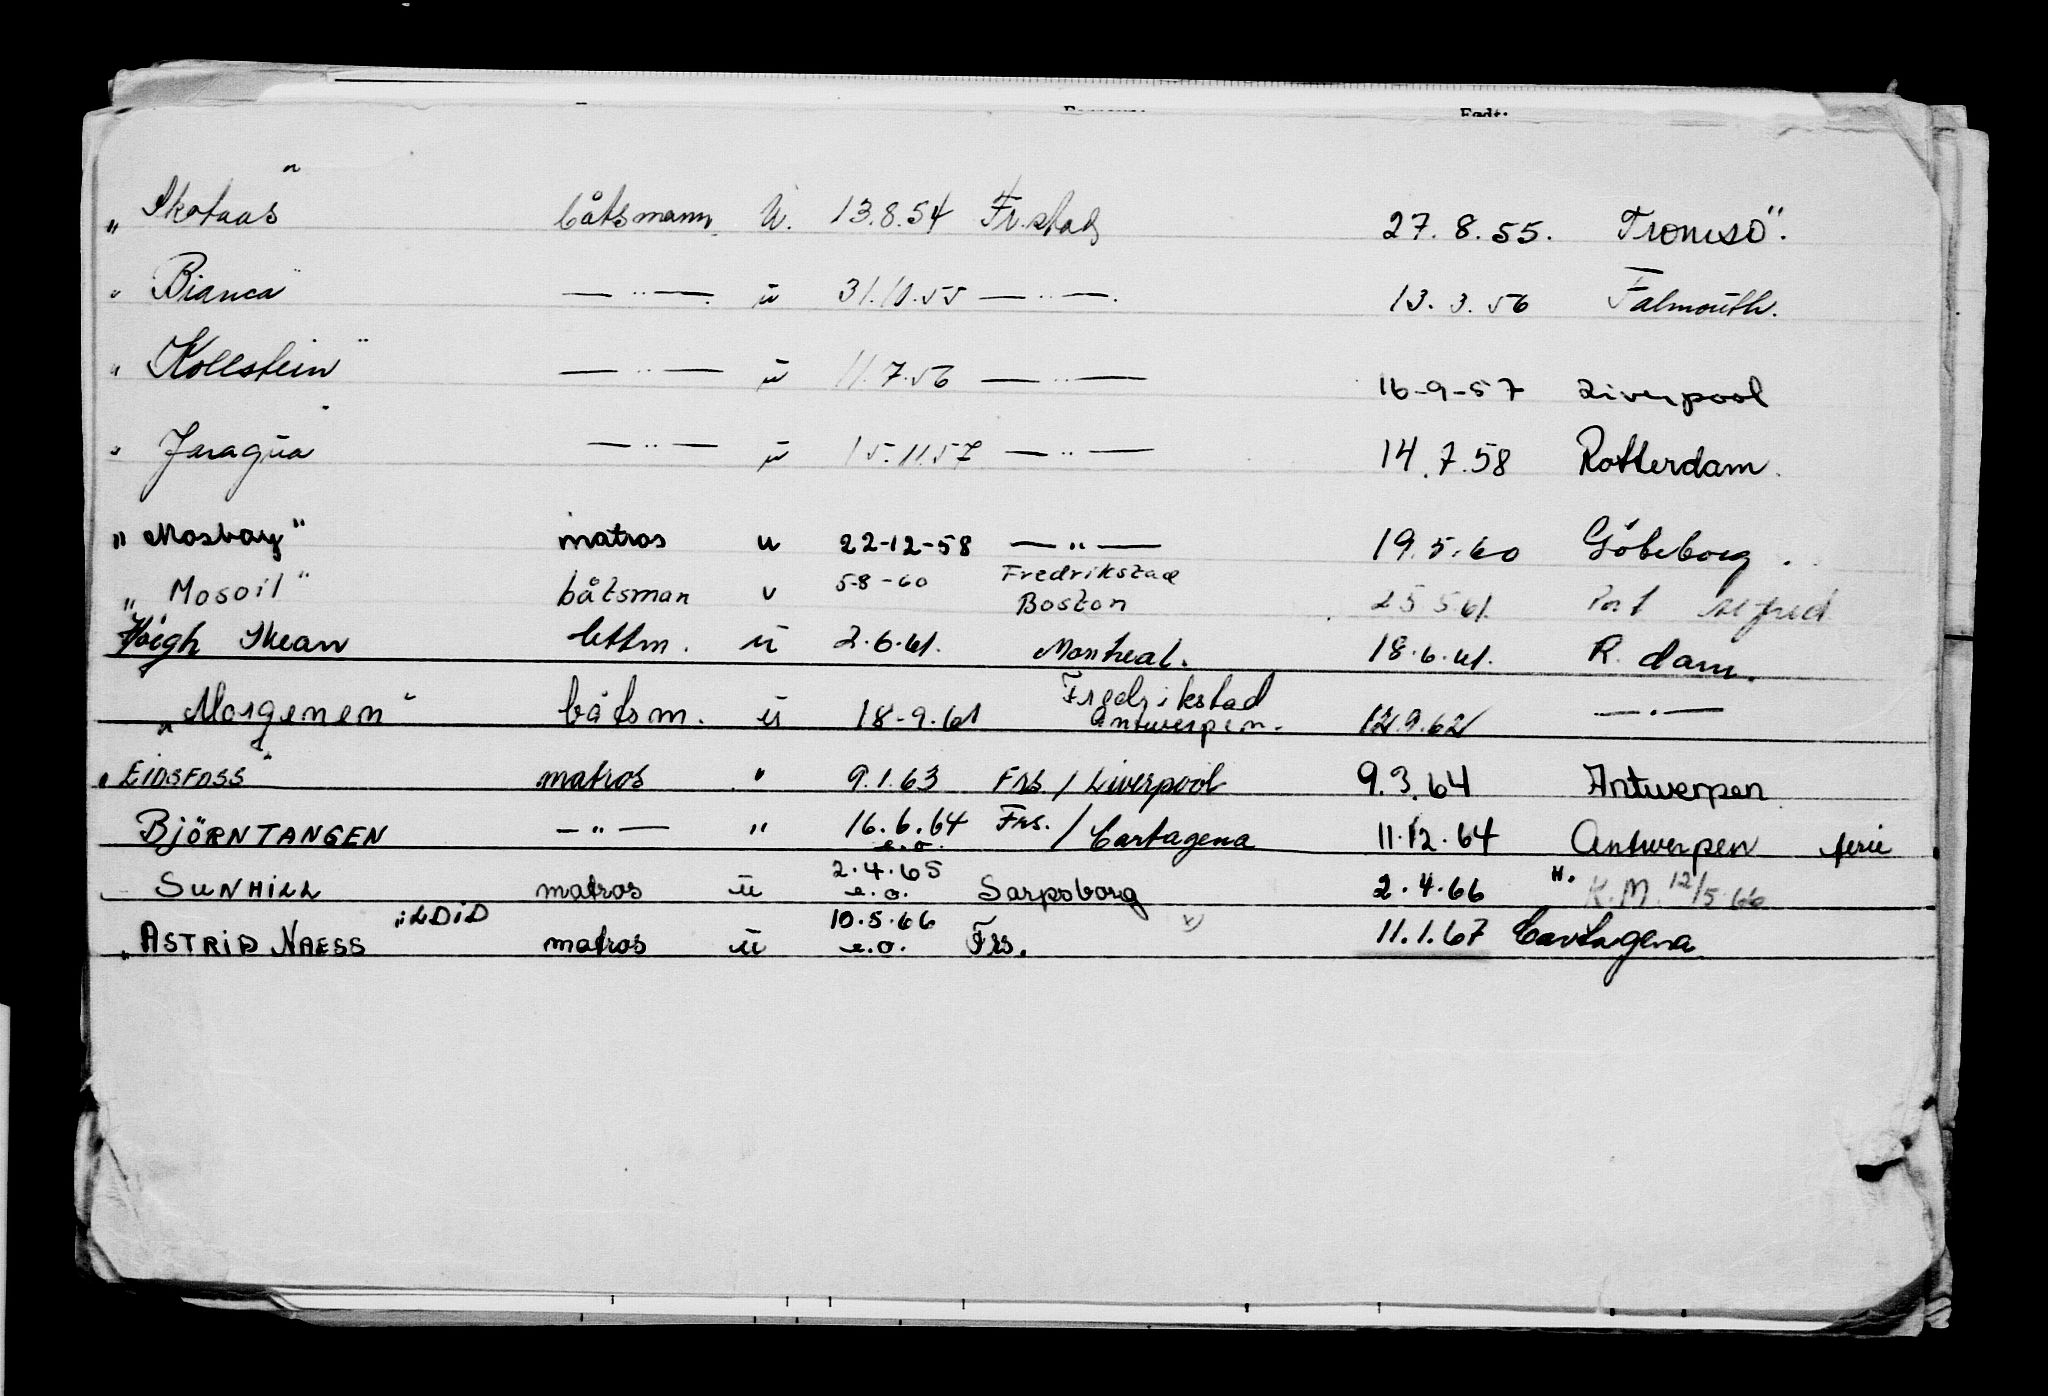 Født:
"Skotaas" båtsmann U. 13.8.54 Fr.stad 27.8.55. Tromsö.
"Bianca" — " — u 31.10.55 — " — 13.3.56 Falmouth.
"Kollstein" — " — u 11.7.56 — " — 16-9-57 Liverpool
"Jaragua" — " — u 15.11.57 — " — 14.7.58 Rotterdam.
"Mosbay" matros u 22-12-58 — " — 19.5.60 Göteborg.
"Mosoil" båtsman v 5-8-60 Fredrikstad Boston 25 5 61. Port Alfred
Høegh Skean lettm. u 2.6.61. Montreal. 18.6.61. R. dam.
"Morgenen" båtsm. u 18-9-61 Fredrikstad Antwerpen. 12.9.62 — " —
"EIDSFOSS" matros " 9.1.63 Frs. / Liverpool 9.3.64 Antwerpen
BJÖRNTANGEN — " — " 16.6.64 e.o. Frs. / Cartagena 11.12.64 Antwerpen ferie
SUNHILL matros u 2.4.65 e.o. Sarpsborg 2.4.66 ". K.M. 12/5-66
"ASTRID NAESS" : LDID matros u 10.5.66 e.o. Frs. v) 11.1.67 Cartagena